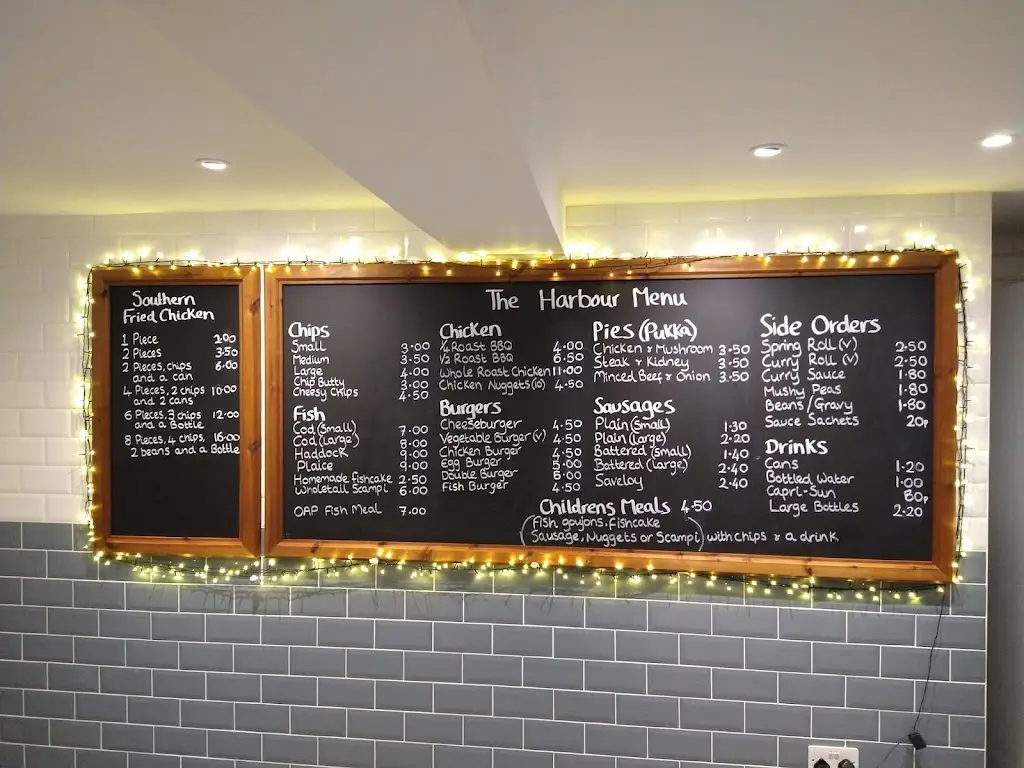 Southern
Fried Chicken
1 Piece 2.00
2 Pieces 3.50
2 Pieces, chips 6.00
and a can
4 Pieces, 2 chips 10.00
and 2 cans
6 Pieces, 3 chips 12.00
and a Bottle
8 Pieces, 4 chips, 16.00
2 beans and a Bottle
The Harbour Menu
Chips
Small 3.00
Medium 3.50
Large 4.00
Chip Butty 3.00
Cheesy Chips 4.50
Fish
Cod (Small) 7.00
Cod (Large) 8.00
Haddock 9.00
Plaice 9.00
Homemade fishcake 2.50
Wholetail Scampi 6.00
OAP Fish Meal 7.00
Chicken
¼ Roast BBQ 4.00
½ Roast BBQ 6.50
Whole Roast Chicken 11.00
Chicken Nuggets (10) 4.50
Burgers
Cheeseburger 4.50
Vegetable Burger (V) 4.50
Chicken Burger 4.50
Egg Burger 5.00
Double Burger 5.00
Fish Burger 4.50
Pies (Pukka)
Chicken & Mushroom 3.50
Steak & Kidney 3.50
Minced Beef & Onion 3.50
Sausages
Plain (Small) 1.30
Plain (Large) 2.20
Battered (Small) 1.40
Battered (Large) 2.40
Saveloy 2.40
Childrens Meals 4.50
(Fish goujons, fishcake
Sausage, Nuggets or Scampi) with chips & a drink
Side Orders
Spring Roll (V) 2.50
Curry Roll (V) 2.50
Curry Sauce 1.80
Mushy Peas 1.80
Beans/Gravy 1.80
Sauce Sachets 20p
Drinks
Cans 1.20
Bottled Water 1.00
Capri-Sun 80p
Large Bottles 2.20